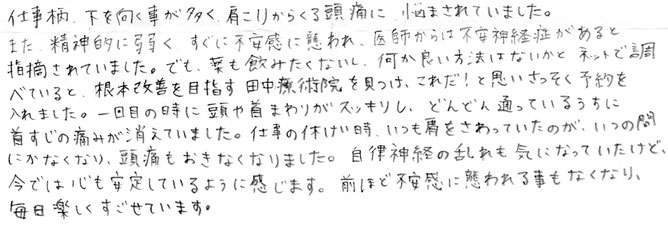 仕事柄、下を向く事が多く、肩こりからくる頭痛に、悩まされていました。
また、精神的に弱く、すぐに不安感に襲われ、医師からは不安神経症があると
指摘されていました。でも、薬も飲みたくないし、何か良い方法はないかと ネットで調
べていると、根本改善を目指す 田中療術院を見つけ、これだ！と思いさっそく予約を
入れました。一回目の時に頭や首まわりがスッキリし、どんどん通っているうちに
首すじの痛みが消えていました。仕事の休けい時、いつも肩をさわっていたのが、いつの間
にかなくなり、頭痛もおきなくなりました。自律神経の乱れも気になっていたけど、
今では心も安定しているように感じます。前ほど不安感に襲われる事もなくなり、
毎日楽しくすごせています。